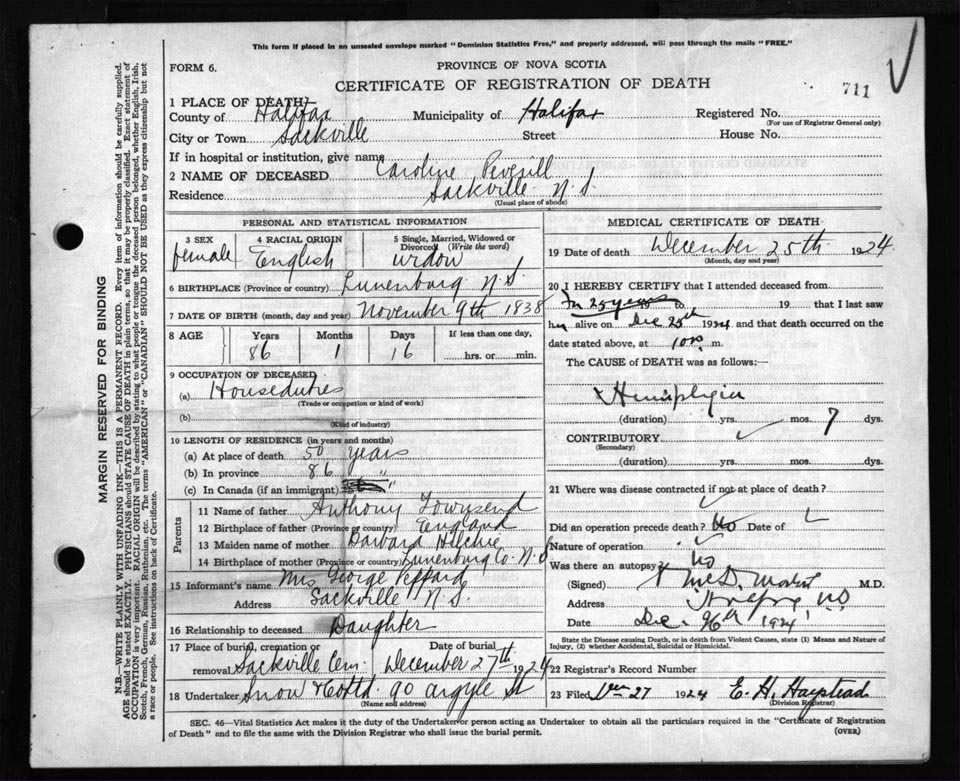 This form if placed in an unsealed envelope marked "Dominion Statistics Free," and properly addressed, will pass through the mails "FREE."
FORM 6.
PROVINCE OF NOVA SCOTIA
CERTIFICATE OF REGISTRATION OF DEATH
711
1 PLACE OF DEATH
County of Halifax Municipality of Halifax Registered No.
(For use of Registrar General only)
City or Town Sackville Street House No.
If in hospital or institution, give name
2 NAME OF DECEASED Caroline
Residence Sackville N. S.
(Usual place of abode)
PERSONAL AND STATISTICAL INFORMATION
3 SEX 4 RACIAL ORIGIN 5 Single, Married, Widowed or Divorced (Write the word)
female English widow
6 BIRTHPLACE (Province or country) Lunenburg N S
7 DATE OF BIRTH (month, day and year) November 9th 1838
8 AGE Years Months Days If less than one day,
86 1 16 hrs. or min.
9 OCCUPATION OF DECEASED
(a) Houseduties
(Trade or occupation or kind of work)
(b)
(Kind of industry)
10 LENGTH OF RESIDENCE (in years and months)
(a) At place of death 50 years
(b) In province 86 "
(c) In Canada (if an immigrant) "
Parents
11 Name of father Anthony Townsend
12 Birthplace of father (Province or country) England
13 Maiden name of mother Barbara
14 Birthplace of mother (Province or country) Lunenburg Co. N. S
15 Informant's name Mrs George Peppard
Address Sackville N S.
16 Relationship to deceased Daughter
17 Place of burial, cremation or removal Sackville Cem. Date of burial December 27th 1924
18 Undertaker Snow & Co Ltd. 90 Argyle St
(Name and address)
MEDICAL CERTIFICATE OF DEATH
19 Date of death December 25th 1924
(Month, day and year)
20 I HEREBY CERTIFY that I attended deceased from
In 25 years to 19 that I last saw
her alive on Dec 25th 1924 and that death occurred on the
date stated above, at m.
The CAUSE of DEATH was as follows:—
Hemiplegia
(duration) yrs. mos. 7 dys.
CONTRIBUTORY
(Secondary)
(duration) yrs. mos. dys.
21 Where was disease contracted if not at place of death?
Did an operation precede death? No Date of
Nature of operation
Was there an autopsy? No
(Signed) M.D.
Address
Date Dec. 26th 1924
State the Disease causing Death, or in death from Violent Causes, state (1) Means and Nature of Injury, (2) whether Accidental, Suicidal or Homicidal.
22 Registrar's Record Number
23 Filed Dec 27 1924 E. H. Haystead
(Division Registrar)
SEC. 46—Vital Statistics Act makes it the duty of the Undertaker or person acting as Undertaker to obtain all the particulars required in the "Certificate of Registration
of Death" and to file the same with the Division Registrar who shall issue the burial permit.
(OVER)
MARGIN RESERVED FOR BINDING
N.B—WRITE PLAINLY WITH UNFADING INK—THIS IS A PERMANENT RECORD. Every item of information should be carefully supplied.
AGE should be stated EXACTLY. PHYSICIANS should STATE CAUSE OF DEATH in plain terms, so that it may be properly classified. Exact statement of
OCCUPATION is very important. RACIAL ORIGIN will be described by stating to what people or tongue the deceased person belonged, whether English, Irish,
Scotch, French, German, Russian, Ruthenian, etc. The terms "AMERICAN" or "CANADIAN" SHOULD NOT BE USED as they express citizenship but not
a race or people. See instructions on back of Certificate.